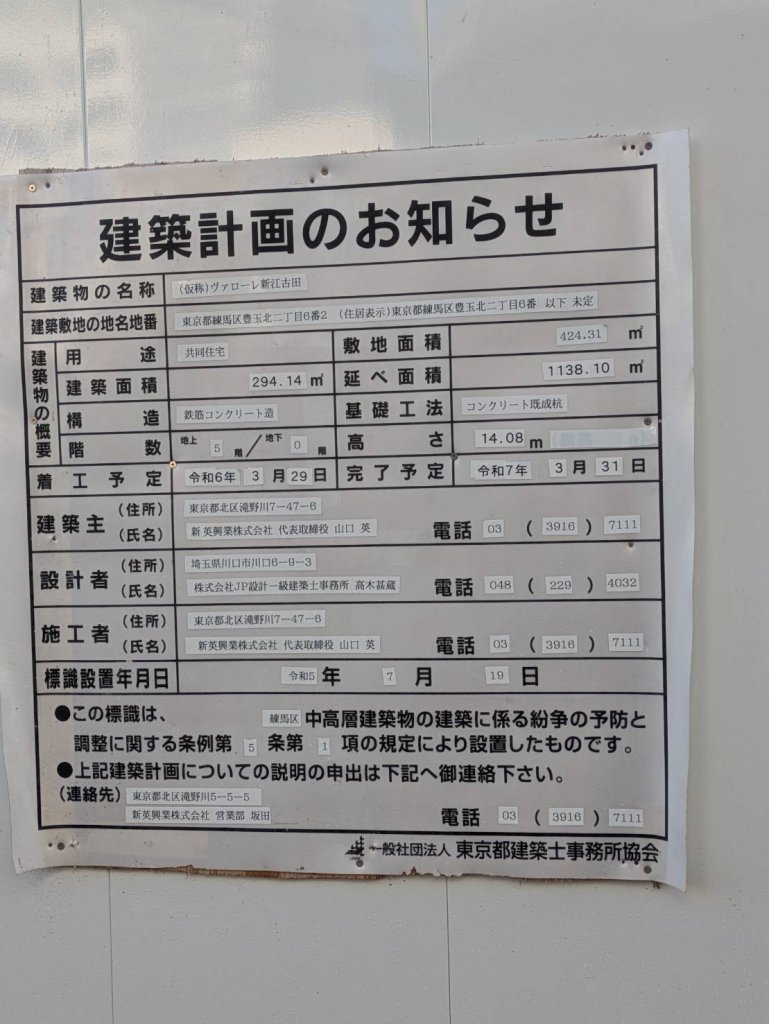 建築計画のお知らせ
建築物の名称 (仮称)ヴァローレ新江古田
建築敷地の地名地番 東京都練馬区豊玉北二丁目6番2 (住居表示)東京都練馬区豊玉北二丁目6番 以下 未定
建築物の概要
用途 共同住宅 敷地面積 424.31 ㎡
建築面積 294.14 ㎡ 延べ面積 1138.10 ㎡
構造 鉄筋コンクリート造 基礎工法 コンクリート既成杭
階数 地上 5 階/地下 0 階 高さ 14.08 m
着工予定 令和6年 3 月 29 日 完了予定 令和7年 3 月 31 日
建築主 (住所) 東京都北区滝野川7-47-6
(氏名) 新英興業株式会社 代表取締役 山口 英 電話 03 ( 3916 ) 7111
設計者 (住所) 埼玉県川口市川口6-9-3
(氏名) 株式会社JP設計一級建築士事務所 髙木甚蔵 電話 048 ( 229 ) 4032
施工者 (住所) 東京都北区滝野川7-47-6
(氏名) 新英興業株式会社 代表取締役 山口 英 電話 03 ( 3916 ) 7111
標識設置年月日 令和5 年 7 月 19 日
●この標識は、 練馬区 中高層建築物の建築に係る紛争の予防と
調整に関する条例第 5 条第 1 項の規定により設置したものです。
●上記建築計画についての説明の申出は下記へ御連絡下さい。
(連絡先) 東京都北区滝野川5-5-5
新英興業株式会社 営業部 坂田 電話 03 ( 3916 ) 7111
一般社団法人 東京都建築士事務所協会